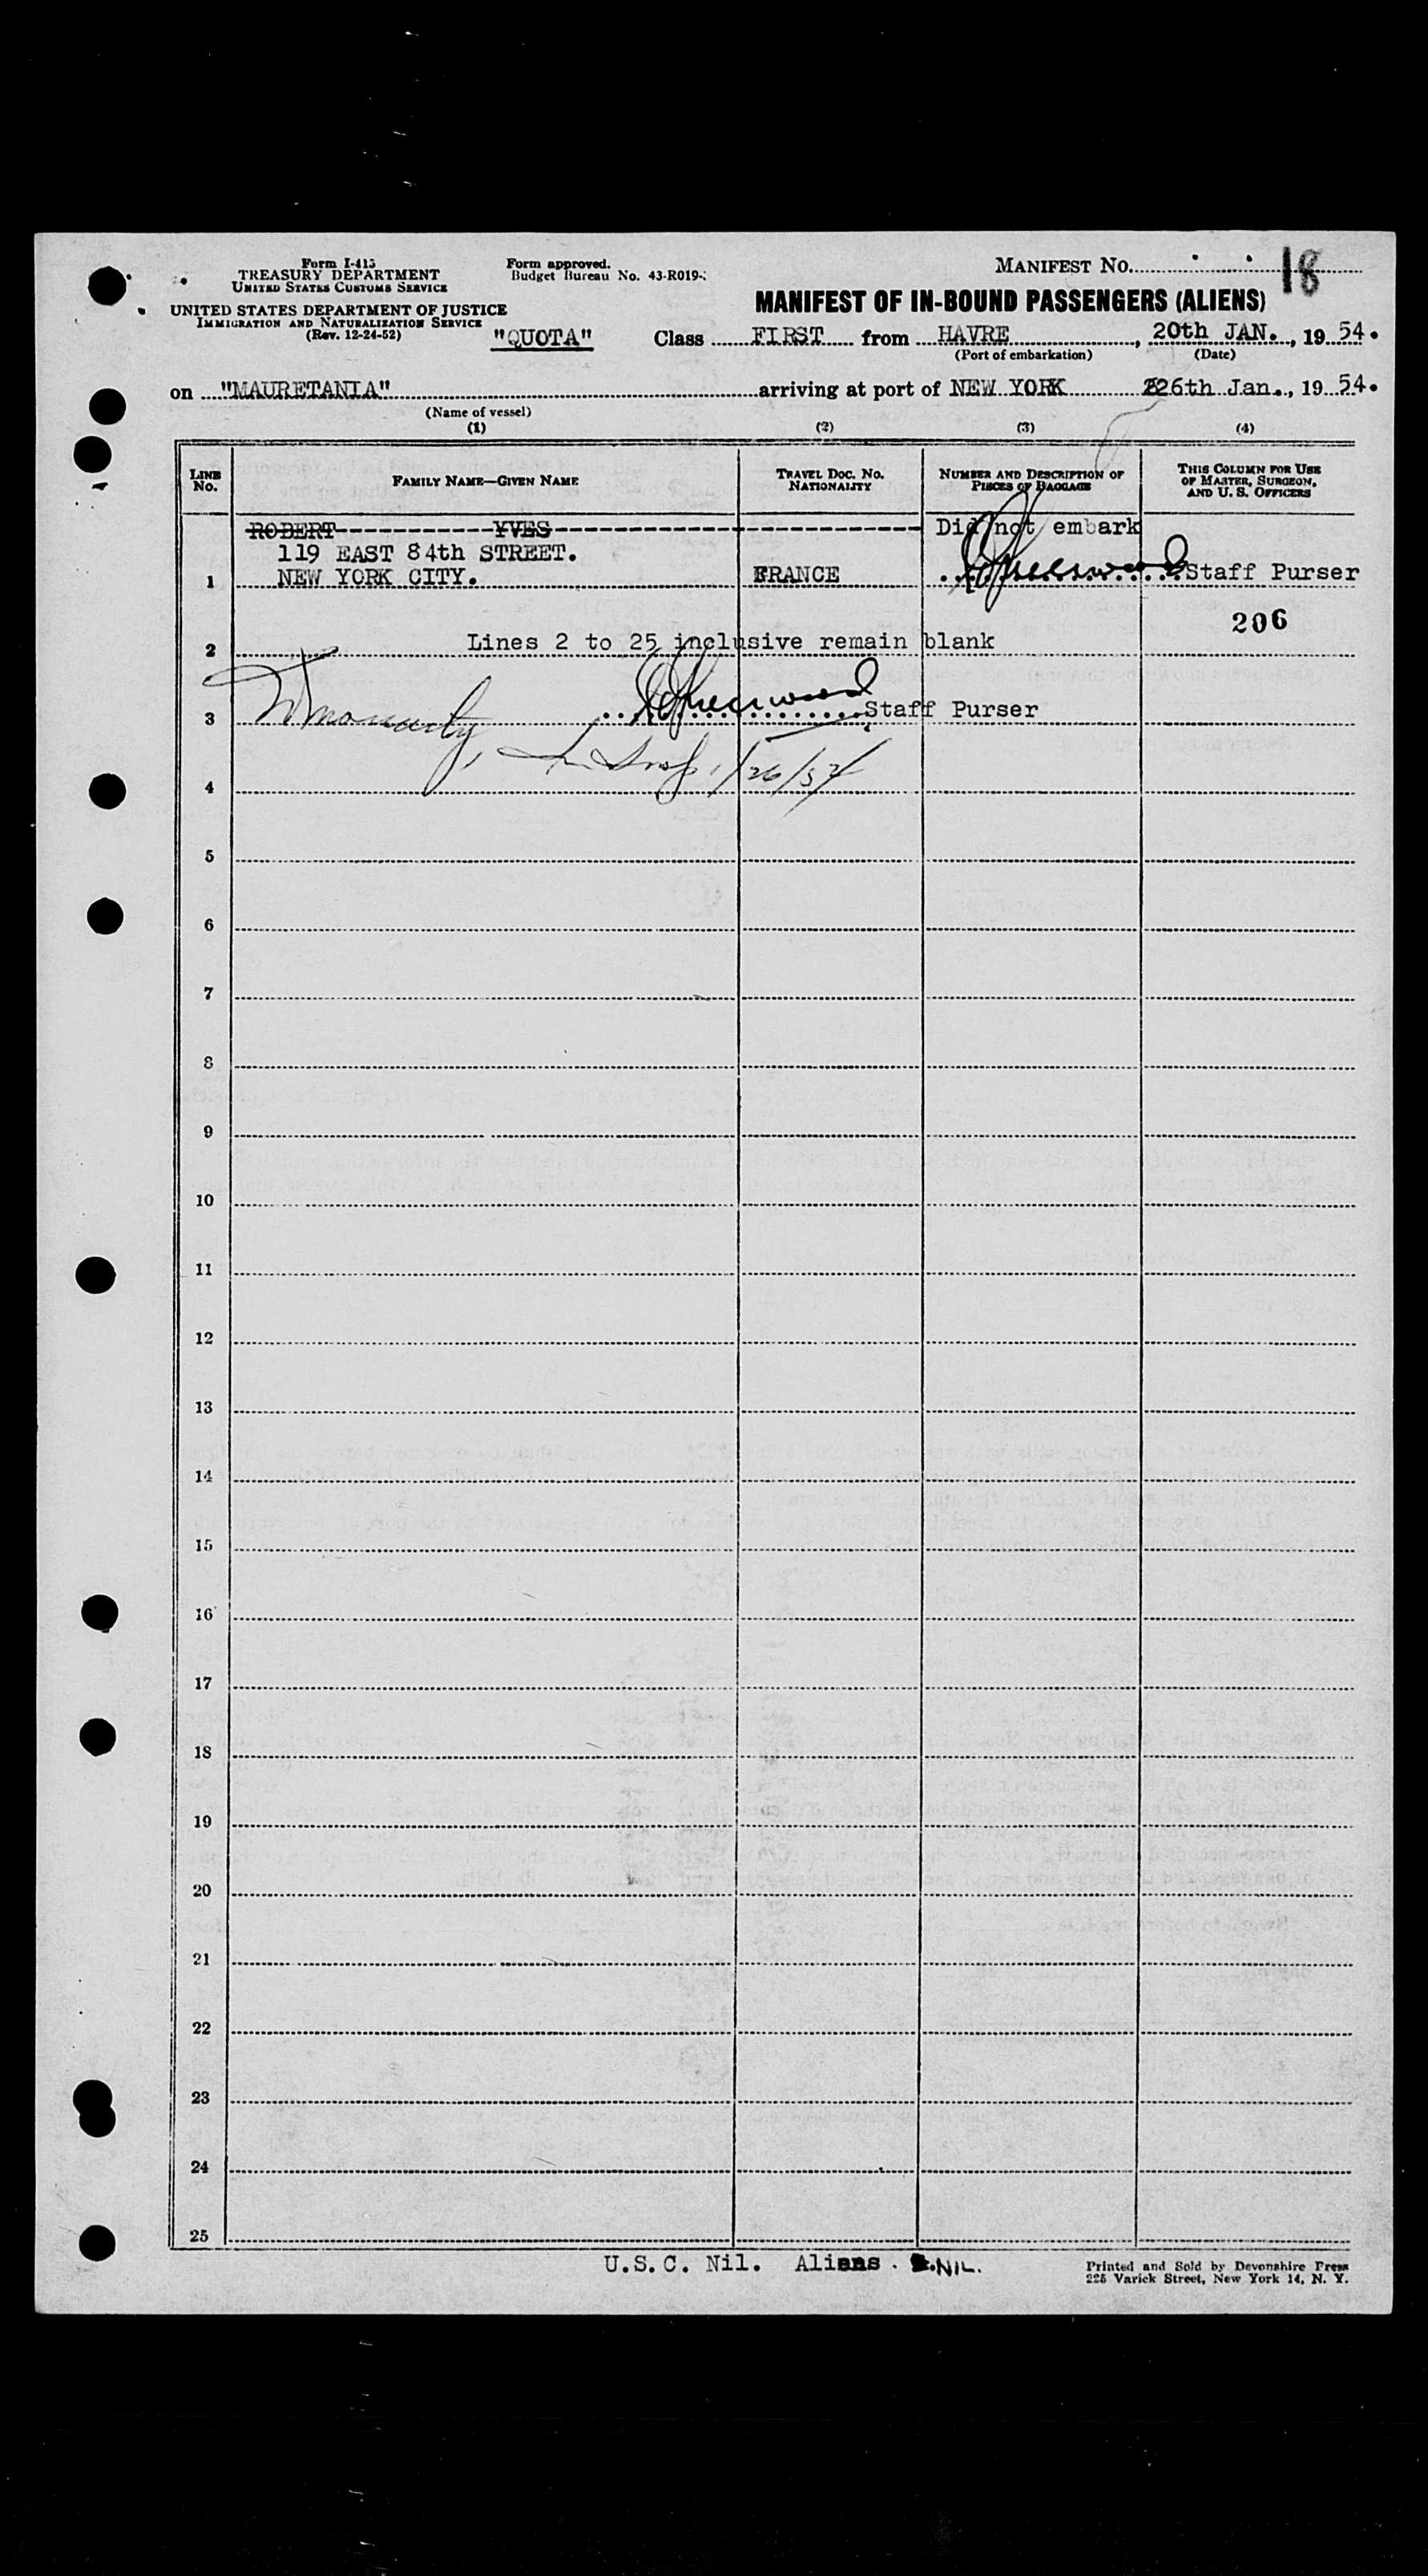 Form I-415
TREASURY DEPARTMENT
UNITED STATES CUSTOMS SERVICE
UNITED STATES DEPARTMENT OF JUSTICE
IMMIGRATION AND NATURALIZATION SERVICE
(Rev. 12-24-52)
Form approved.
Budget Bureau No. 43-R019-
MANIFEST NO. 18
MANIFEST OF IN-BOUND PASSENGERS (ALIENS)
"QUOTA" Class FIRST from HAVRE, 20th JAN., 19 54.
(Port of embarkation) (Date)
on "MAURETANIA" arriving at port of NEW YORK 26th Jan., 19 54.
(Name of vessel)
(1) (2) (3) (4)
LINE NO.
FAMILY NAME—GIVEN NAME
TRAVEL DOC. NO. NATIONALITY
NUMBER AND DESCRIPTION OF PIECES OF BAGGAGE
THIS COLUMN FOR USE OF MASTER, SURGEON, AND U. S. OFFICERS
ROBERT YVES Did not embark
119 EAST 84th STREET.
1 NEW YORK CITY. FRANCE Staff Purser
206
2 Lines 2 to 25 inclusive remain blank
3 Staff Purser
1/26/54
4
5
6
7
8
9
10
11
12
13
14
15
16
17
18
19
20
21
22
23
24
25
U.S.C. Nil. Aliens. NIL.
Printed and Sold by Devonshire Press
225 Varick Street, New York 14, N. Y.